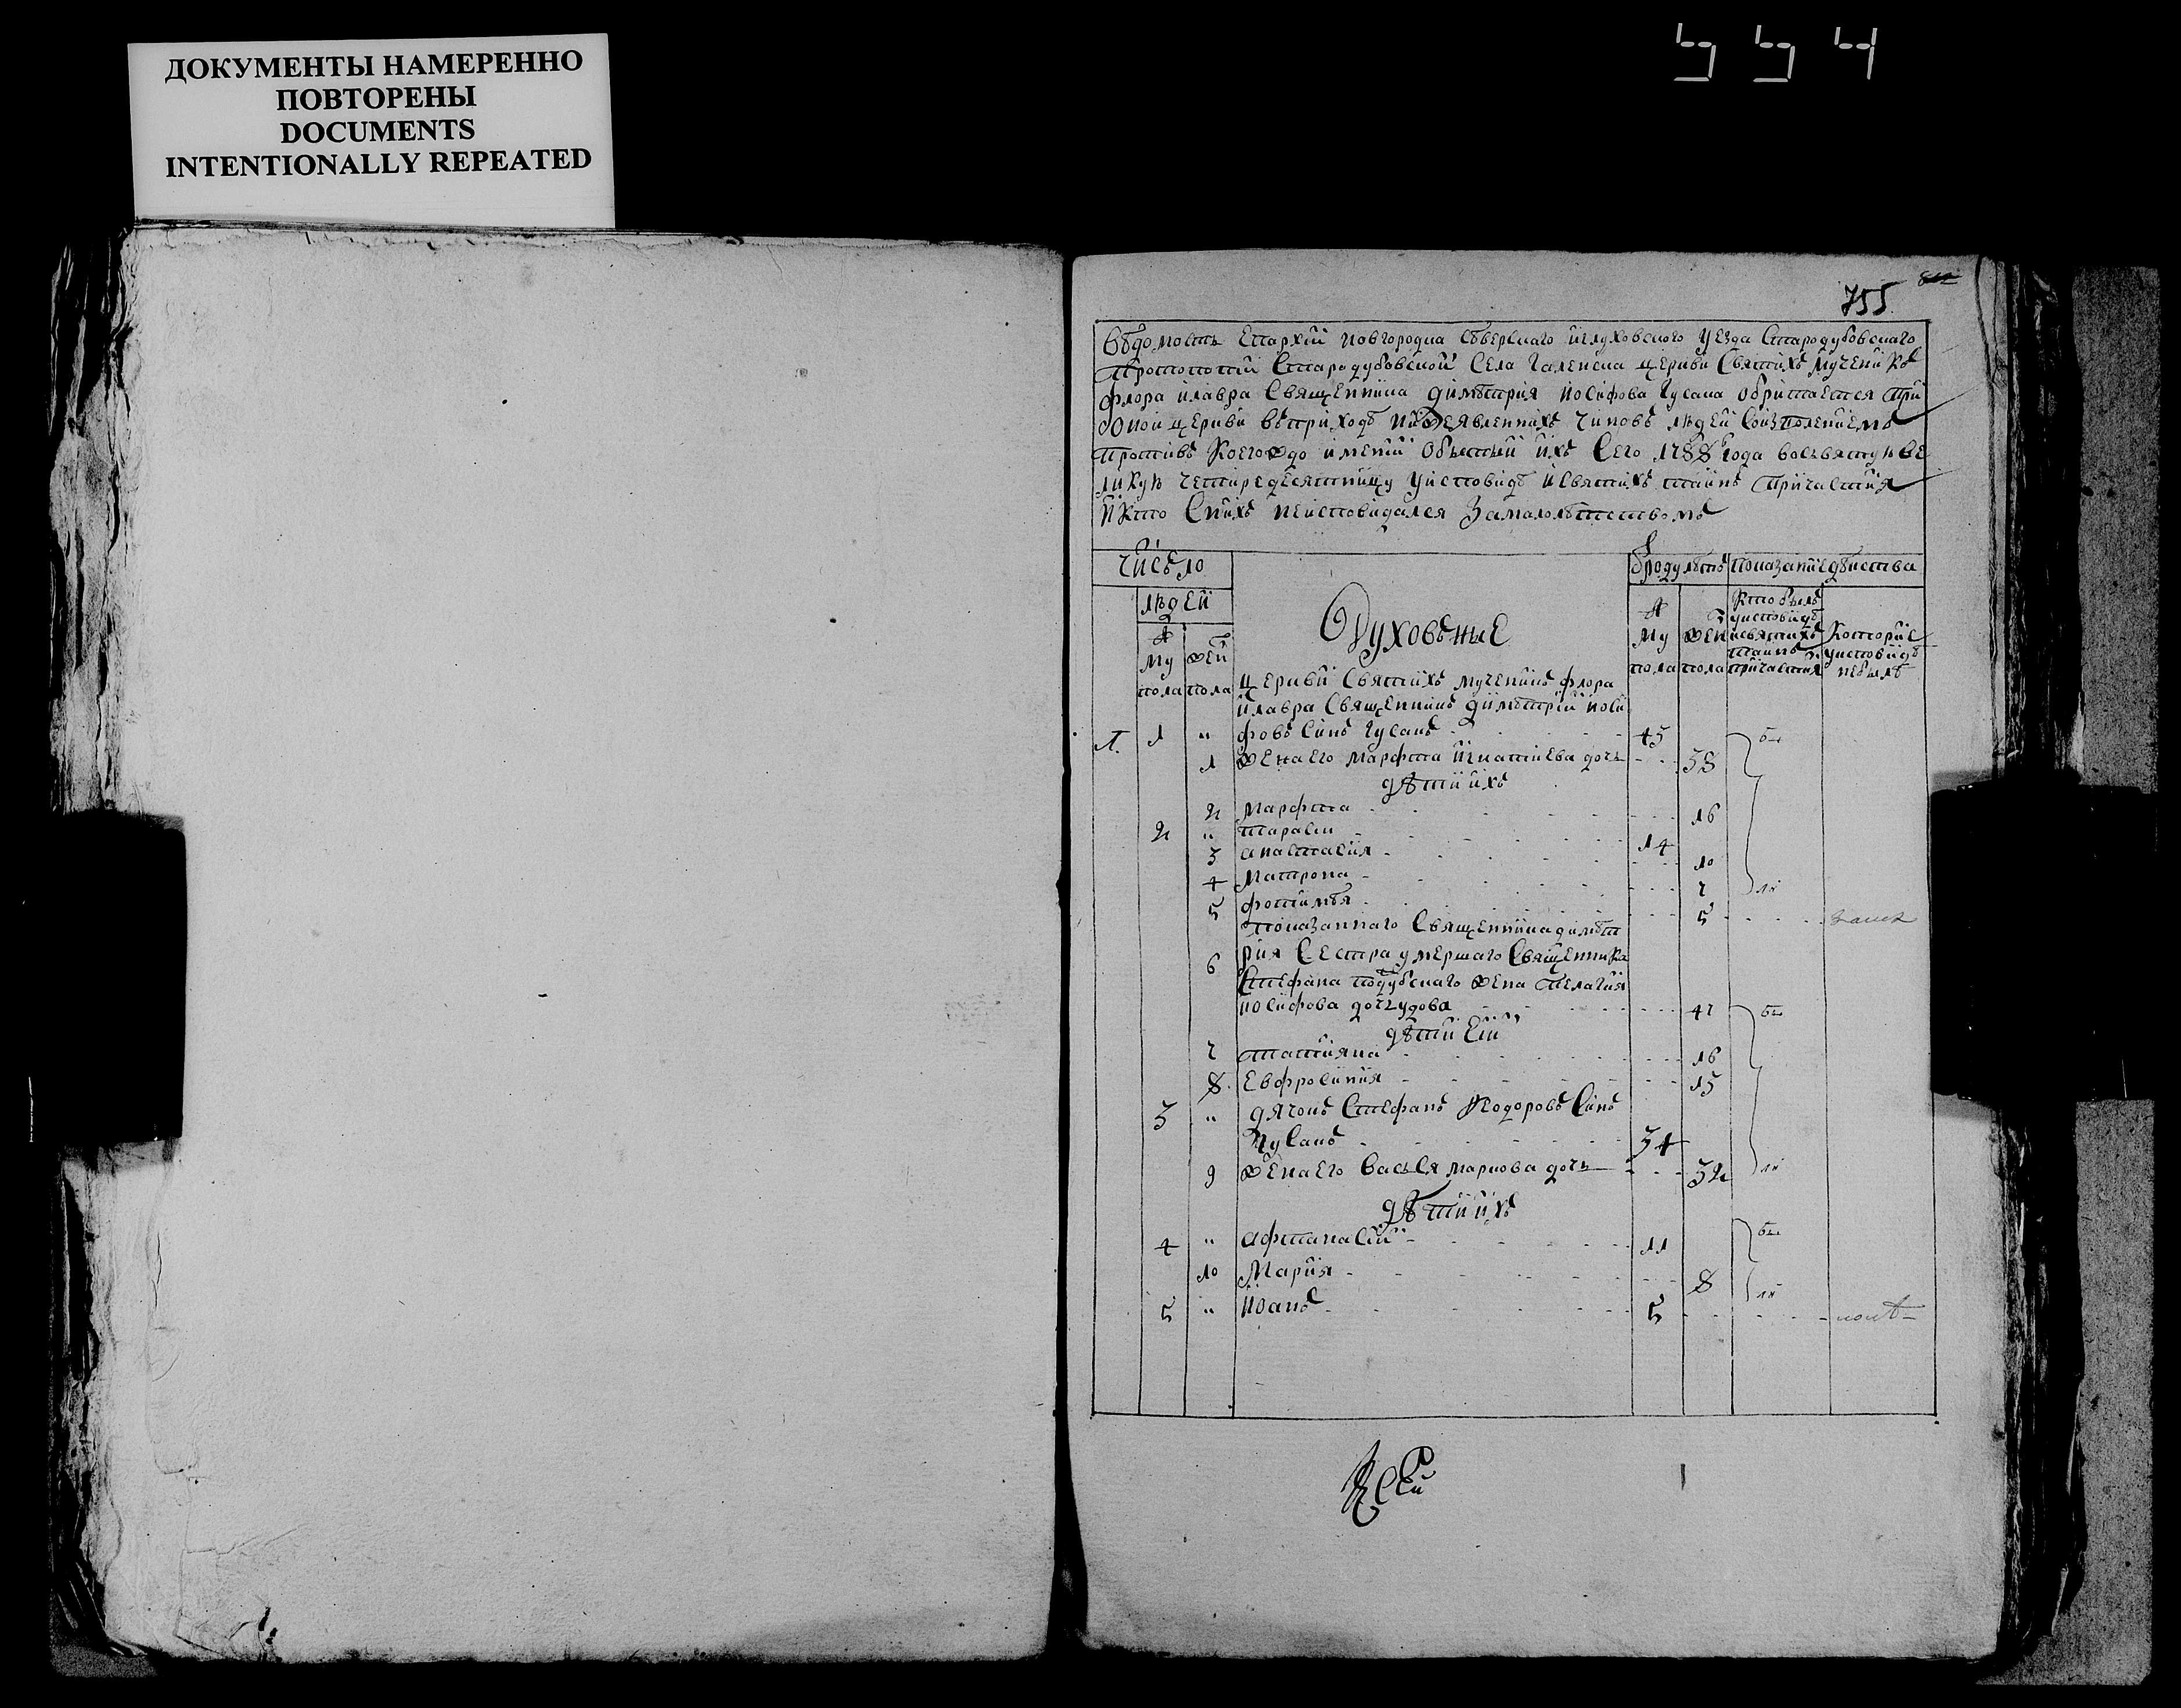 ДОКУМЕНТЫ НАМЕРЕННО
ПОВТОРЕНЫ
DOCUMENTS
INTENTIONALLY REPEATED
554
755
Вѣдомость Епархіи Новгородка Сѣверскаго и Глуховского уезда Стародубовскаго
протопопіи Стародубовской Села Галенска церкви Святихъ Мученикъ
Флора и Лавра Священника Димѣтрия Иосифова Гусака обритается при
оной церкви въ приходѣ нижеявленнихъ чиновъ людей Соизъ
противъ Коегождо имений Объ ихъ Сего 1788 года восвятую ве
ликую четиредесятницу уисповидѣ и святихъ таинъ причастия
и Кто Снихъ неисповидался Замалолѣтствомъ
число
людей
му пола
жен пола
Духовъные
му пола
жен пола
Показание дѣиства
Кто былъ уисповидѣ исвятихъ таинъ причастия
Которие уисповидѣ небылъ
церкви Святихъ мученикъ флора
и лавра Священникъ Димѣтрий Иоси
1 1 " фовъ синъ Гусакъ 45
1 жена его марфта Игнатиева дочь 38
дѣти ихъ
2 Марфта 16
2 " тараси 14
3 анастасия 10
4 Матрона 7
5 5
показаннаго Священника димѣт
6 рия Сестра умершаго Священника
Стефана жена пелагия
иосифова дочь удова 47
дѣти Ей
7 татияна 16
8 Евфросиния 15
3 " дячокъ Стефанъ Феодоровъ Синъ
Гусакъ 34
9 жена его Васъся маркова дочь 32
дѣти ихъ
4 " афтанасий 11
10 Мария 8
5 " Иоанъ 5